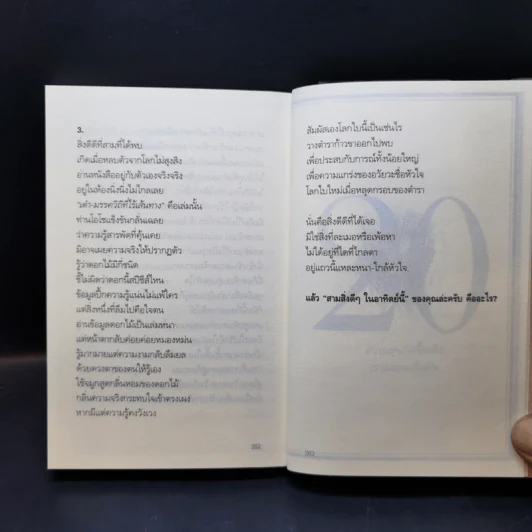 3.
สิ่งดีดีที่สามที่ได้พบ
เกิดเมื่อหลบตัวจากโลกไม่สูงสิง
อ่านหนังสืออยู่กับตัวเองจริงจริง
อยู่ในห้องนิ่งนิ่งไม่ไกลเลย
"เต๋า-มรรควิถีที่ไร้เส้นทาง" คือเล่มนั้น
ท่านโอโชแข็งขันกลั่นเฉลย
ว่าความรู้สารพัดที่คุ้นเคย
มิอาจเผยความจริงให้ปรากฏตัว
รู้ว่าดอกไม้มีกี่ชนิด
ชี้ไม่ผิดว่าดอกนี้สปีชีส์ไหน
ข้อมูลปึ้กความรู้แน่นไม่แพ้ใคร
แต่สิ่งหนึ่งที่ลืมไปคือใจตน
อ่านข้อมูลดอกไม้เป็นเล่มหนา
แต่หน้าตากลับค่อยค่อยหมองหม่น
รู้มากมายแต่ความงามกลับลืมยล
ด้วยดวงตาของตนให้รู้เอง
ใช้จมูกสูดกลิ่นหอมของดอกไม้
กลิ่นความจริงกระทบใจเข้าตรงเผง
หากมีแต่ความรู้คงวังเวง
352
สัมผัสเองโลกใบนี้เป็นเช่นไร
วางตำราก้าวขาออกไปพบ
เพื่อประสบกับการณ์ทั้งน้อยใหญ่
เพื่อความแกร่งของอวัยวะชื่อหัวใจ
โลกใบใหม่เมื่อหลุดกรอบของตำรา
นั่นคือสิ่งดีดีที่ได้เจอ
มิใช่สิ่งที่ละเมอหรือเพ้อหา
ไม่ได้อยู่ที่ใดที่ไกลตา
อยู่แถวนี้แหละหนา-ใกล้หัวใจ
แล้ว "สามสิ่งดีๆ ในอาทิตย์นี้" ของคุณล่ะครับ คืออะไร?
353